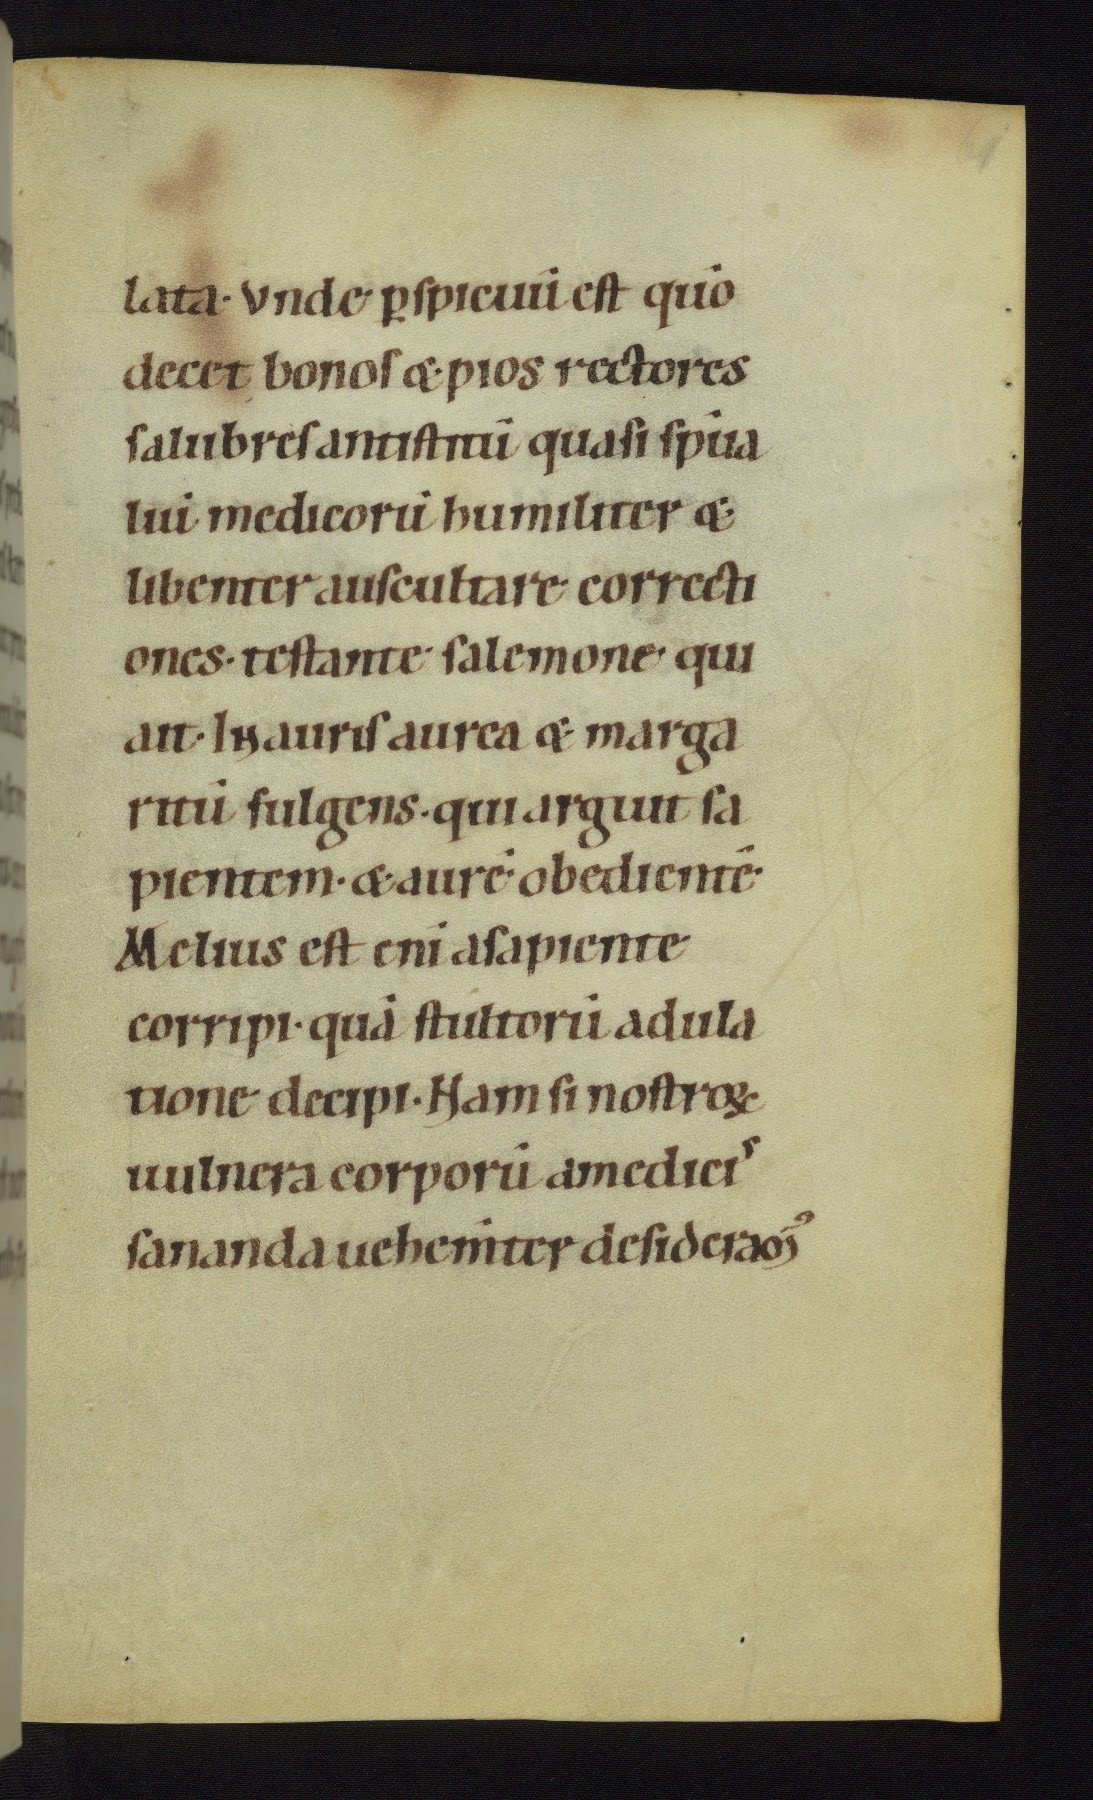 lata· Vnde ꝑspicuū est quō
decet bonos & pios rectores
salubres antistitū quasi spiīta
liū medicorū humiliter &
libenter auscultare correcti
ones· testante salemone qui
ait· Inauris aurea & marga
ritū fulgens· qui arguit sa
pientem· & aurē obedientē·
Melius est enī a sapiente
corripi· quā stultorū adula
tione decipi· Nam si nostroꝝ
uulnera corporū a medicis
sananda uehem̄ter desideram᷒